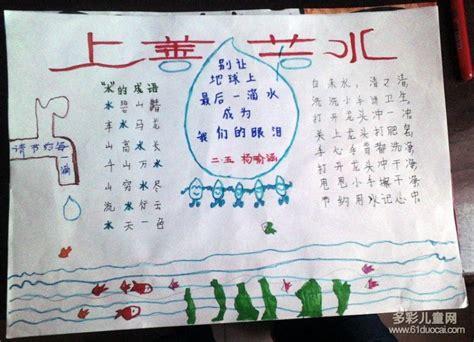 上善苦水
"水"的成语
水 山
车水马龙
山高水长
千山万水
山穷水尽
流水行云
水天一色
请节约每一滴
别让
地球上
最后一滴水
成为
我们的眼泪
二.五 杨喻涵
自来水,清又清,
洗洗小手讲卫生,
打开龙头冲一冲
关上龙头打肥皂
手心手背都洗净
打开龙头冲干净
甩甩小手擦干净
节约用水记心中
多彩儿童网
www.61duocai.com